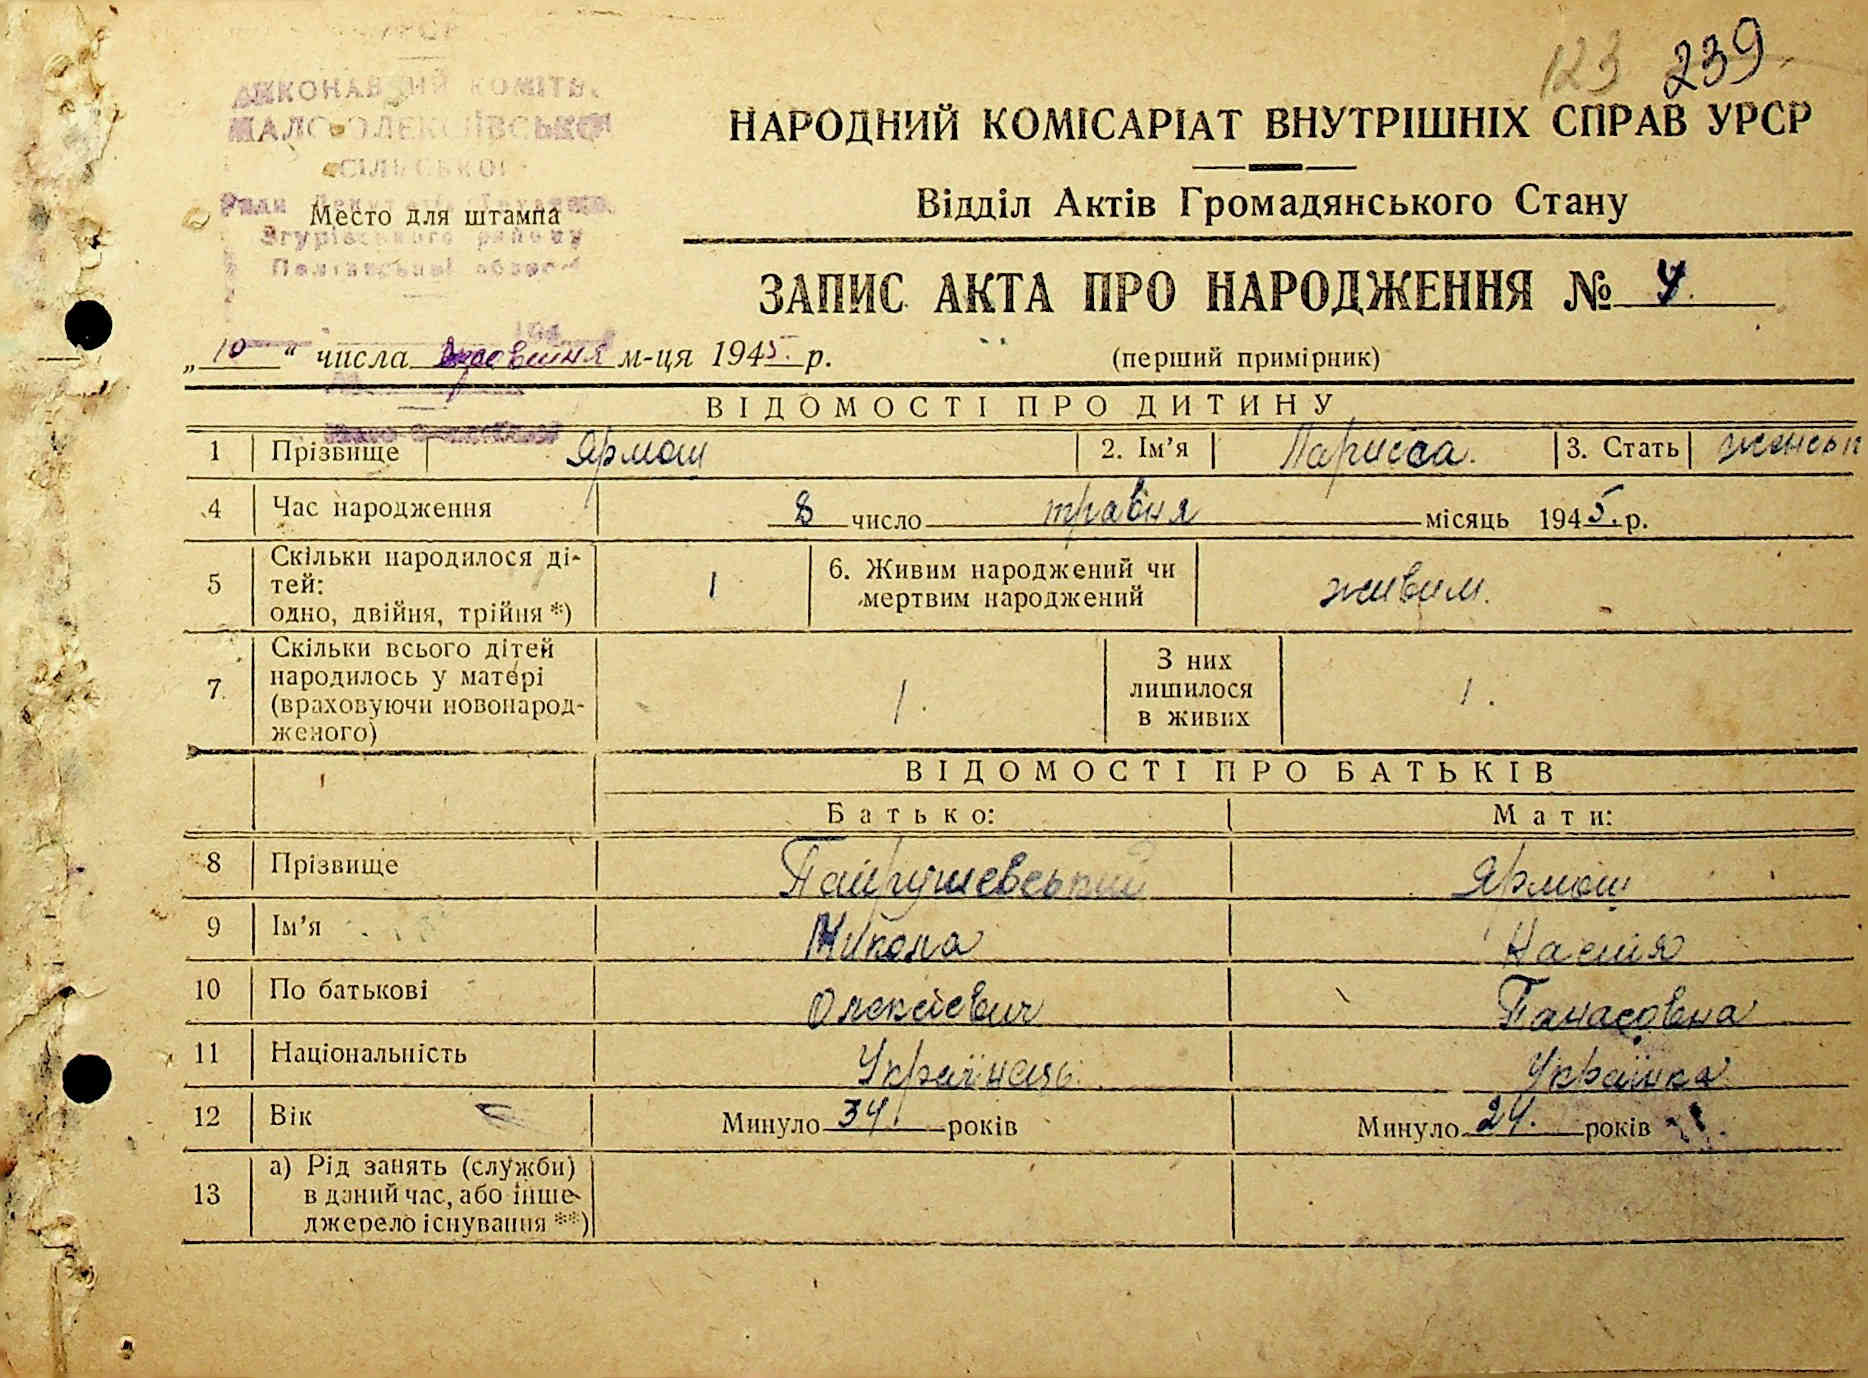 123 239
ВИКОНАВЧИЙ КОМІТЕТ
МАЛО-ОЛЕКСІЇВСЬКОЇ
СІЛЬСЬКОЇ
Згурівського району
Полтавської області
Место для штампа
НАРОДНИЙ КОМІСАРІАТ ВНУТРІШНІХ СПРАВ УРСР
Відділ Актів Громадянського Стану
ЗАПИС АКТА ПРО НАРОДЖЕННЯ № 4.
„10“ числа м-ця 1945. р. (перший примірник)
ВІДОМОСТІ ПРО ДИТИНУ
1 Прізвище Ярмош 2. Ім’я Ларисса. 3. Стать
4 Час народження 8 число травня місяць 1945. р.
5 Скільки народилося ді-
тей:
одно, двійня, трійня *) 1
6. Живим народжений чи
мертвим народжений живим.
7. Скільки всього дітей
народилось у матері
(враховуючи новонарод-
женого) 1.
З них
лишилося
в живих 1.
ВІДОМОСТІ ПРО БАТЬКІВ
Батько: Мати:
8 Прізвище Ярмош
9 Ім’я Микола Настя
10 По батькові Олексієвич Панасовна
11 Національність Українець Українка
12 Вік Минуло 34. років Минуло 24. років
13 а) Рід занять (служби)
в даний час, або інше
джерело існування **)